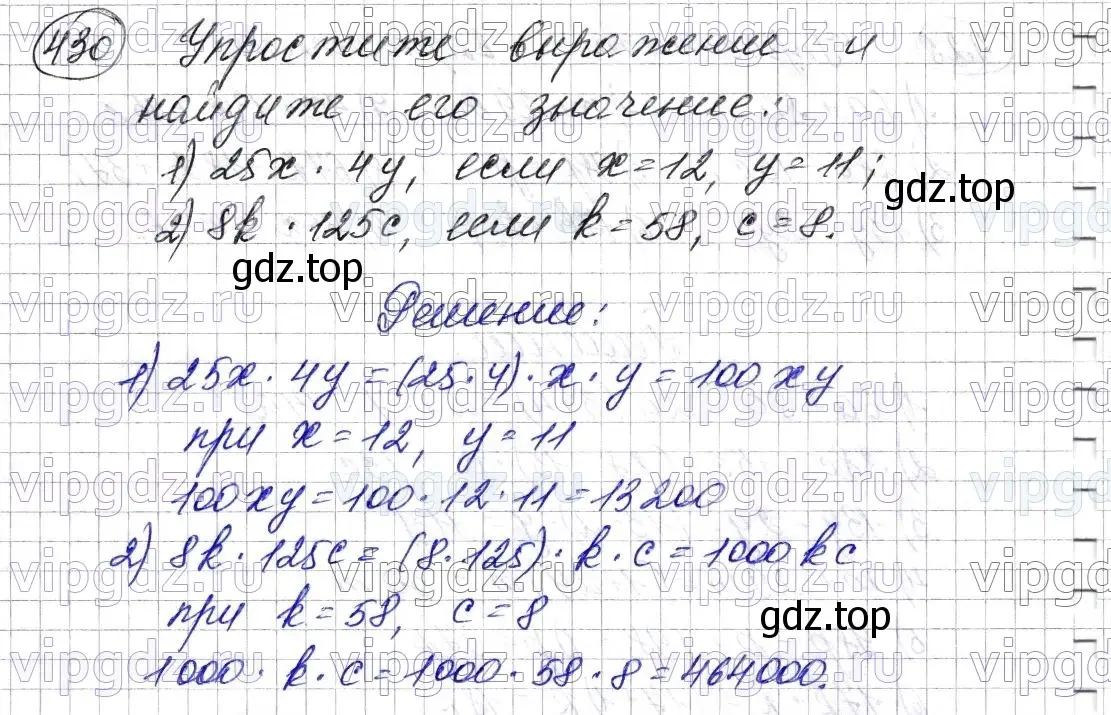 430 Упростите выражение и
найдите его значение:
1) 25x · 4y, если x=12, y=11;
gdz.top
2) 8k · 125c, если k=58, c=8.
gdz.top
Решение:
1) 25x · 4y = (25·4) · x · y = 100xy
при x=12, y=11
100xy = 100 · 12 · 11 = 13200
2) 8k · 125c = (8·125) · k · c = 1000kc
при k=58, c=8
gdz.top
1000 · k · c = 1000 · 58 · 8 = 464000.
vipgdz.ru